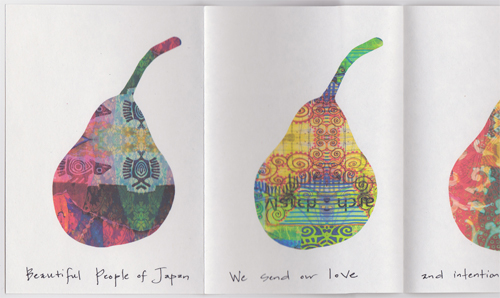 Beautiful People of Japan
We send our love
and intention